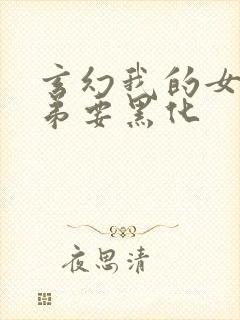 玄幻我的女
弟要黑化
夜思清